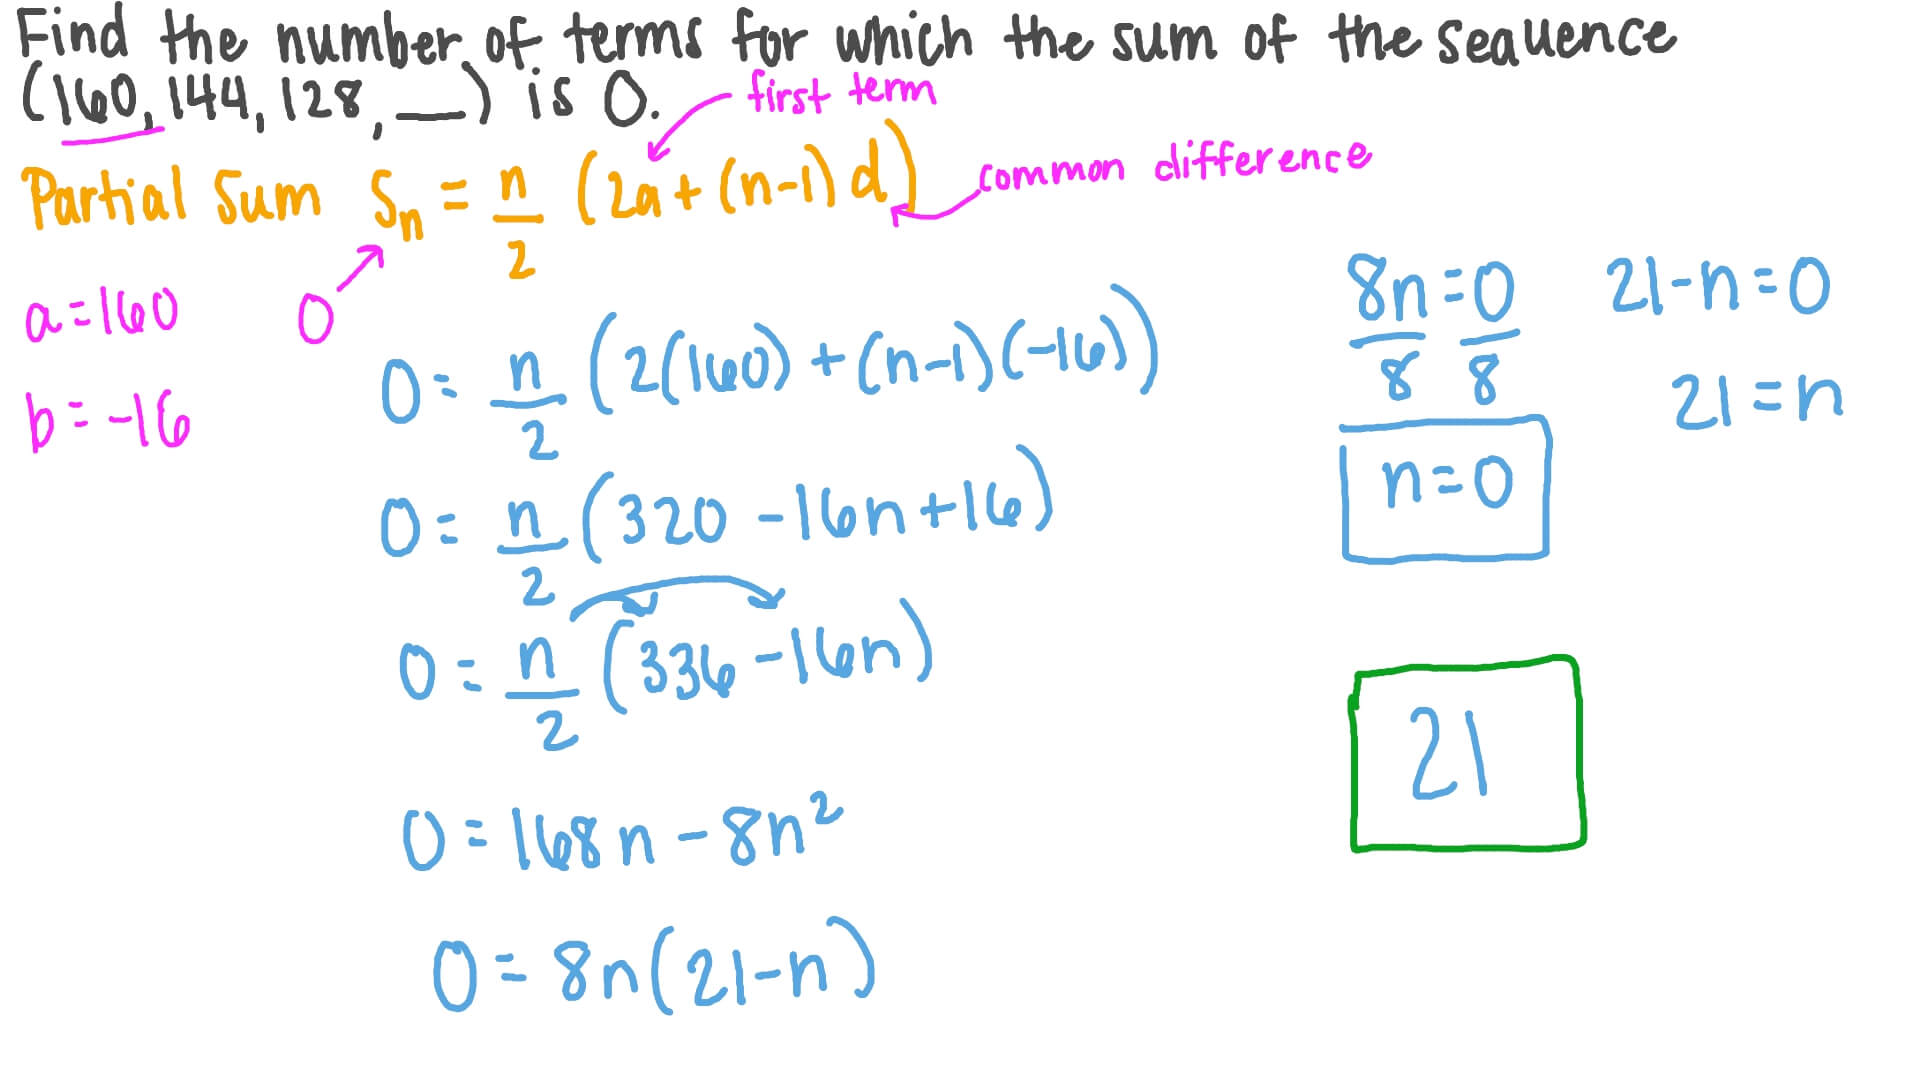 Find the number of terms for which the sum of the seauence
(160, 144, 128, __) is 0.
first term
Partial Sum Sn = n/2 (2a + (n-1) d)
common difference
a = 160
0
b = -16
0 = n/2 (2(160) + (n-1)(-16))
0 = n/2 (320 - 16n + 16)
0 = n/2 (336 - 16n)
0 = 168n - 8n²
0 = 8n(21-n)
8n = 0
8 8
n = 0
21 - n = 0
21 = n
21